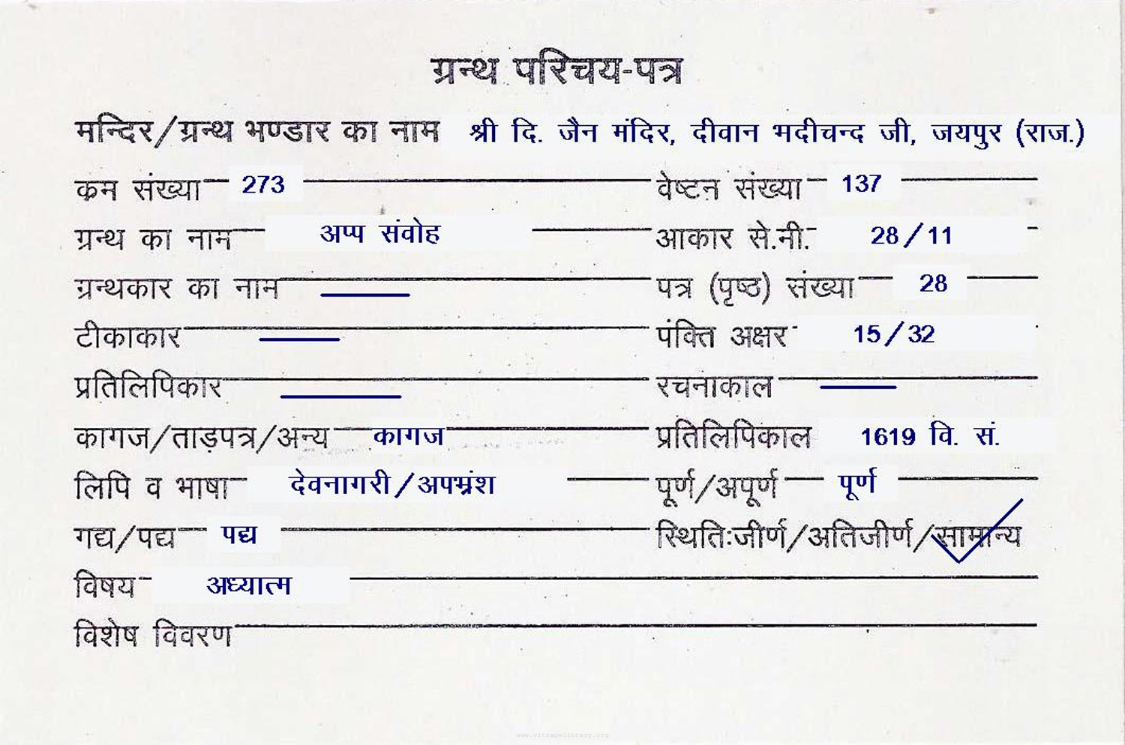 ग्रन्थ परिचय-पत्र
मन्दिर/ग्रन्थ भण्डार का नाम श्री दि. जैन मंदिर, दीवान भदीचन्द जी, जयपुर (राज.)
क्रम संख्या 273 वेष्टन संख्या 137
ग्रन्थ का नाम अप्प संवोह आकार से.मी. 28/11
ग्रन्थकार का नाम — पत्र (पृष्ठ) संख्या 28
टीकाकार — पंक्ति अक्षर 15/32
प्रतिलिपिकार — रचनाकाल —
कागज/ताड़पत्र/अन्य कागज प्रतिलिपिकाल 1619 वि. सं.
लिपि व भाषा देवनागरी/अपभ्रंश पूर्ण/अपूर्ण पूर्ण
गद्य/पद्य पद्य स्थितिःजीर्ण/अतिजीर्ण/सामान्य
विषय अध्यात्म
विशेष विवरण